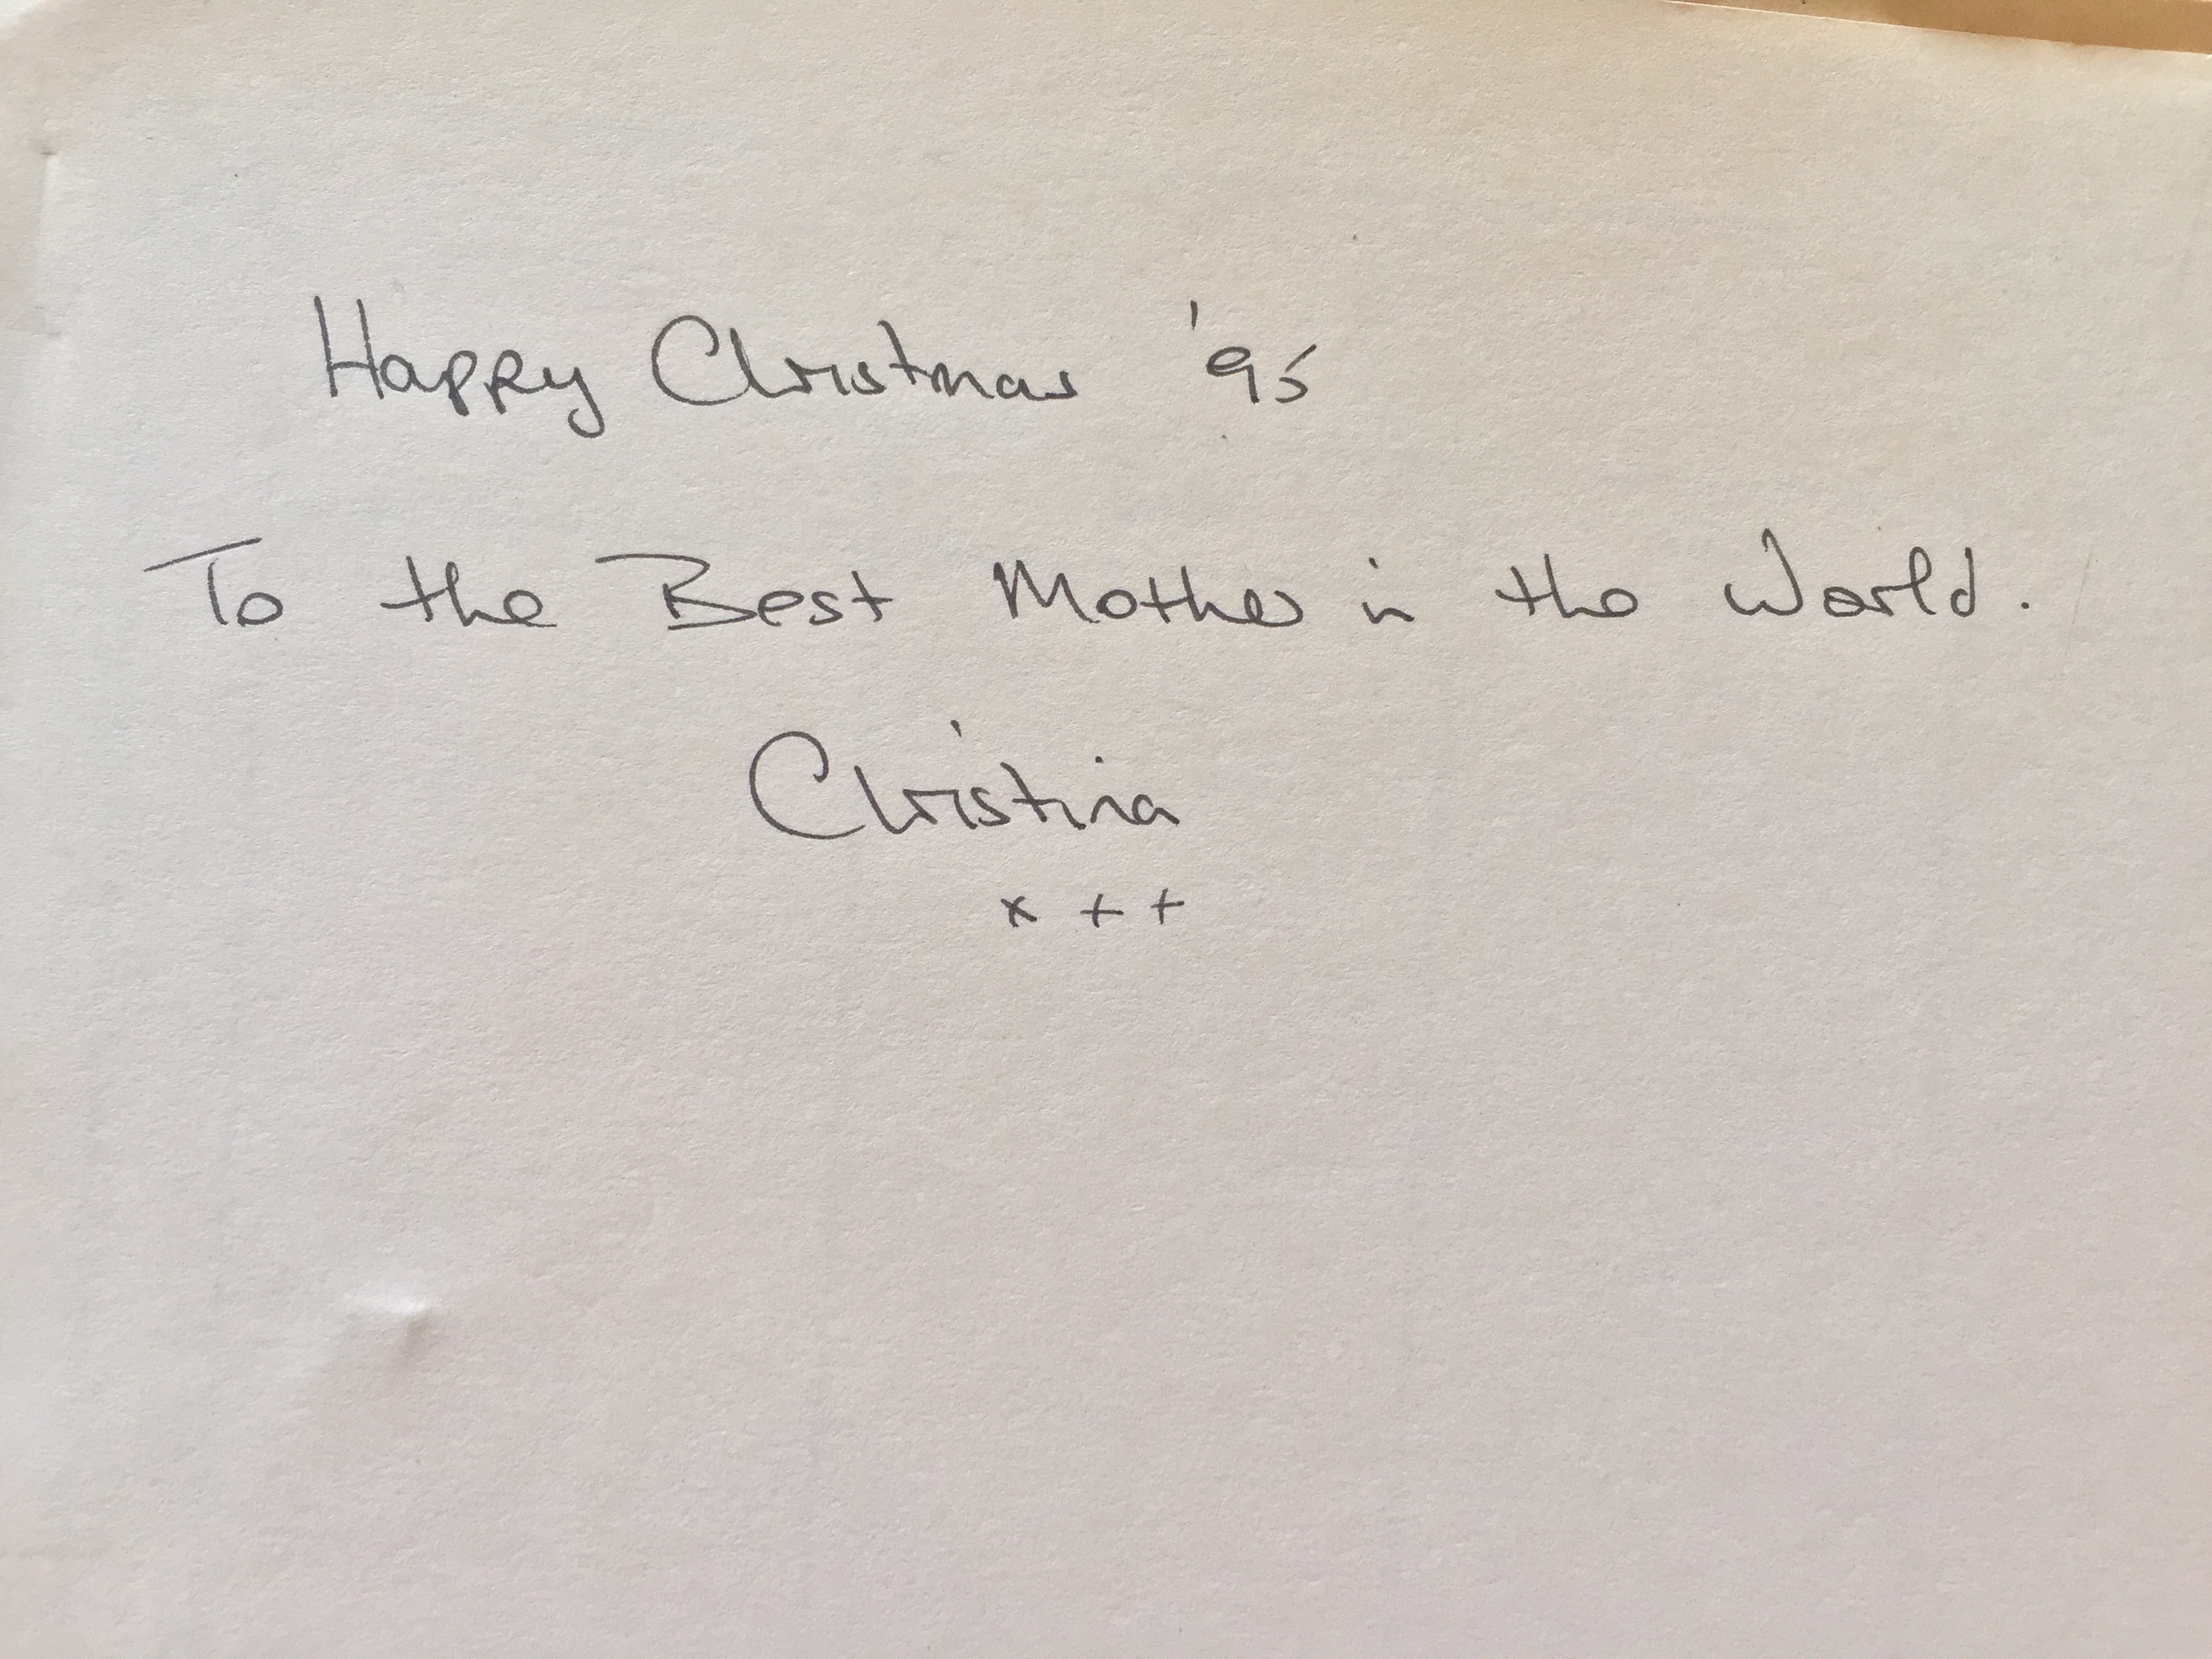 Happy Christmas '95
To the Best Mother in the World.
Christina
x + +